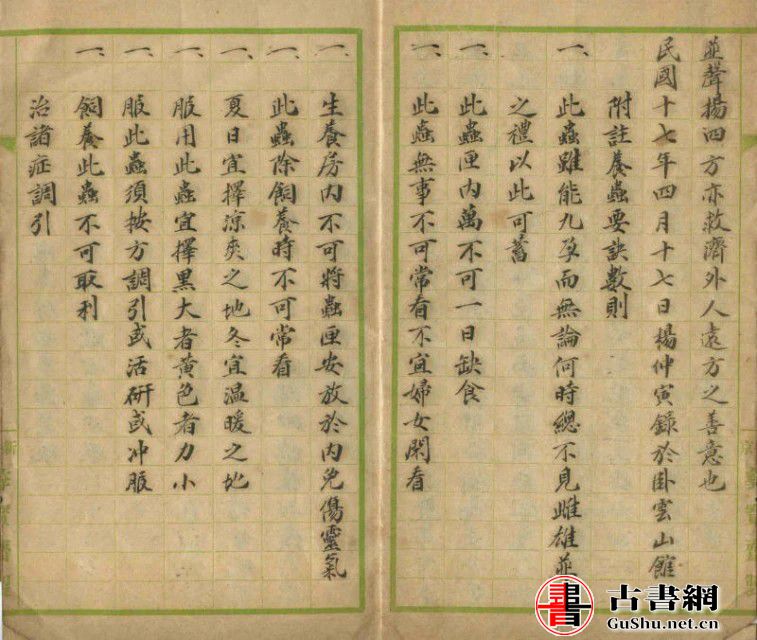 並聲揚四方亦救濟外人遠方之善意也
民國十七年四月十七日楊仲寅錄於卦雲山館
附註養蟲要訣數則
一、此蟲雖能九孕而無論何時總不見雌雄並
之禮以此可蓄
一、此蟲匣內萬不可一日缺食
一、此蟲無事不可常看不宜婦女閑看
一、生養房內不可將蟲匣安放於內免傷靈氣
一、此蟲除飼養時不可常看
一、夏日宜擇涼爽之地冬宜温暖之地
一、服用此蟲宜擇黑大者黃色者力小
一、服此蟲須按方調引或活研或冲服
一、飼養此蟲不可取利
治諸症調引
古書網
GuShu.net.cn